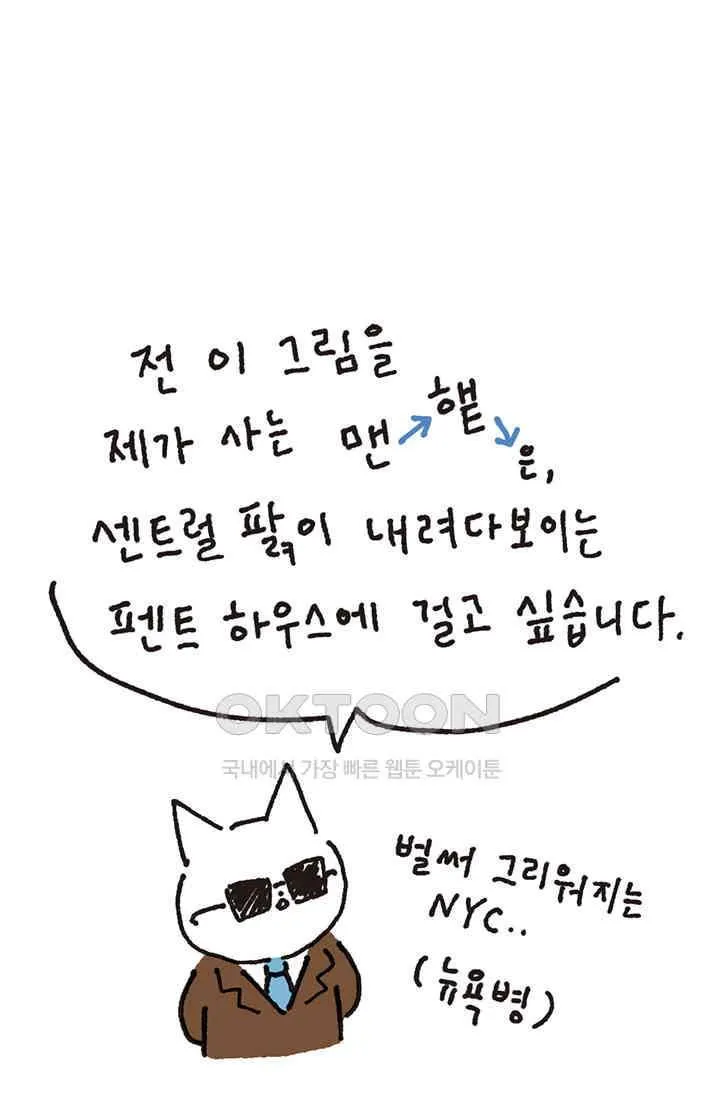 전 이 그림을
제가 사는 맨↗햍↘은,
센트럴 팕이 내려다보이는
펜트 하우스에 걸고 싶습니다.
OKTOON
국내에서 가장 빠른 웹툰 오케이툰
벌써 그리워지는
NYC..
(뉴욕병)